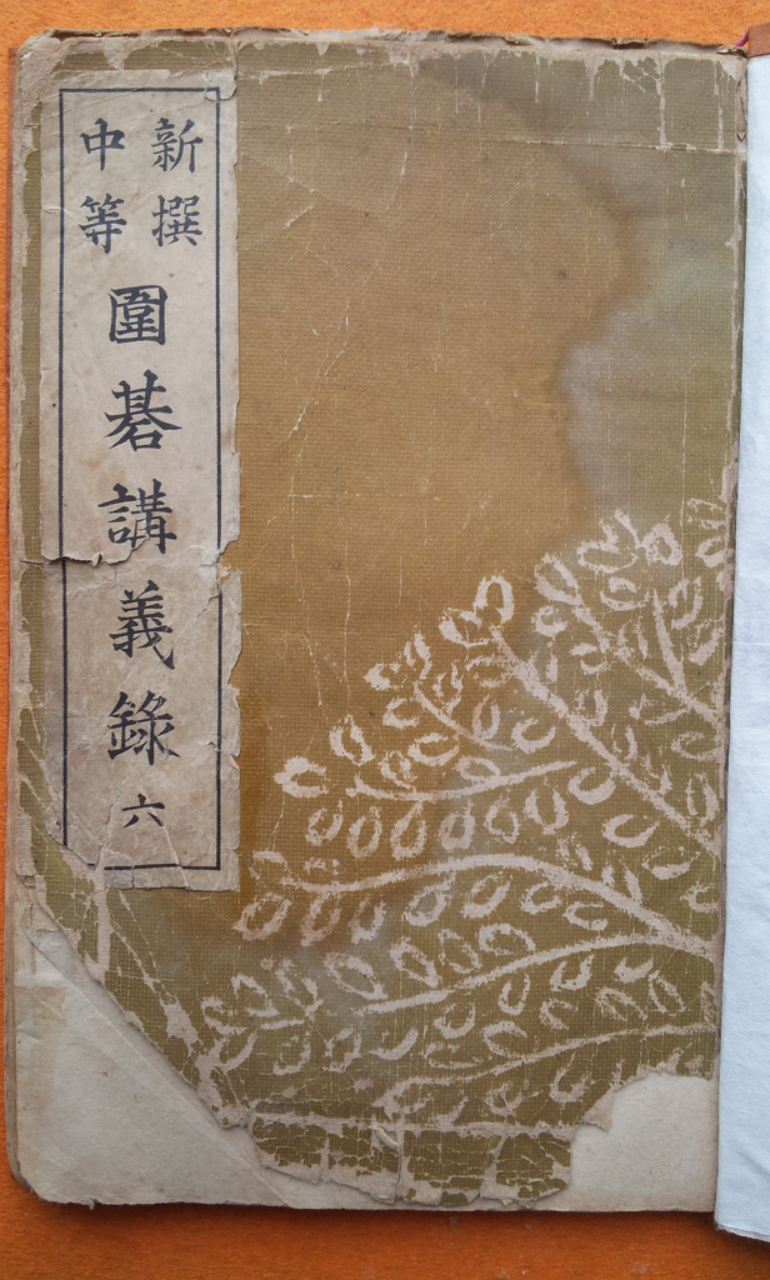 新撰
中等
圍碁講義錄 六